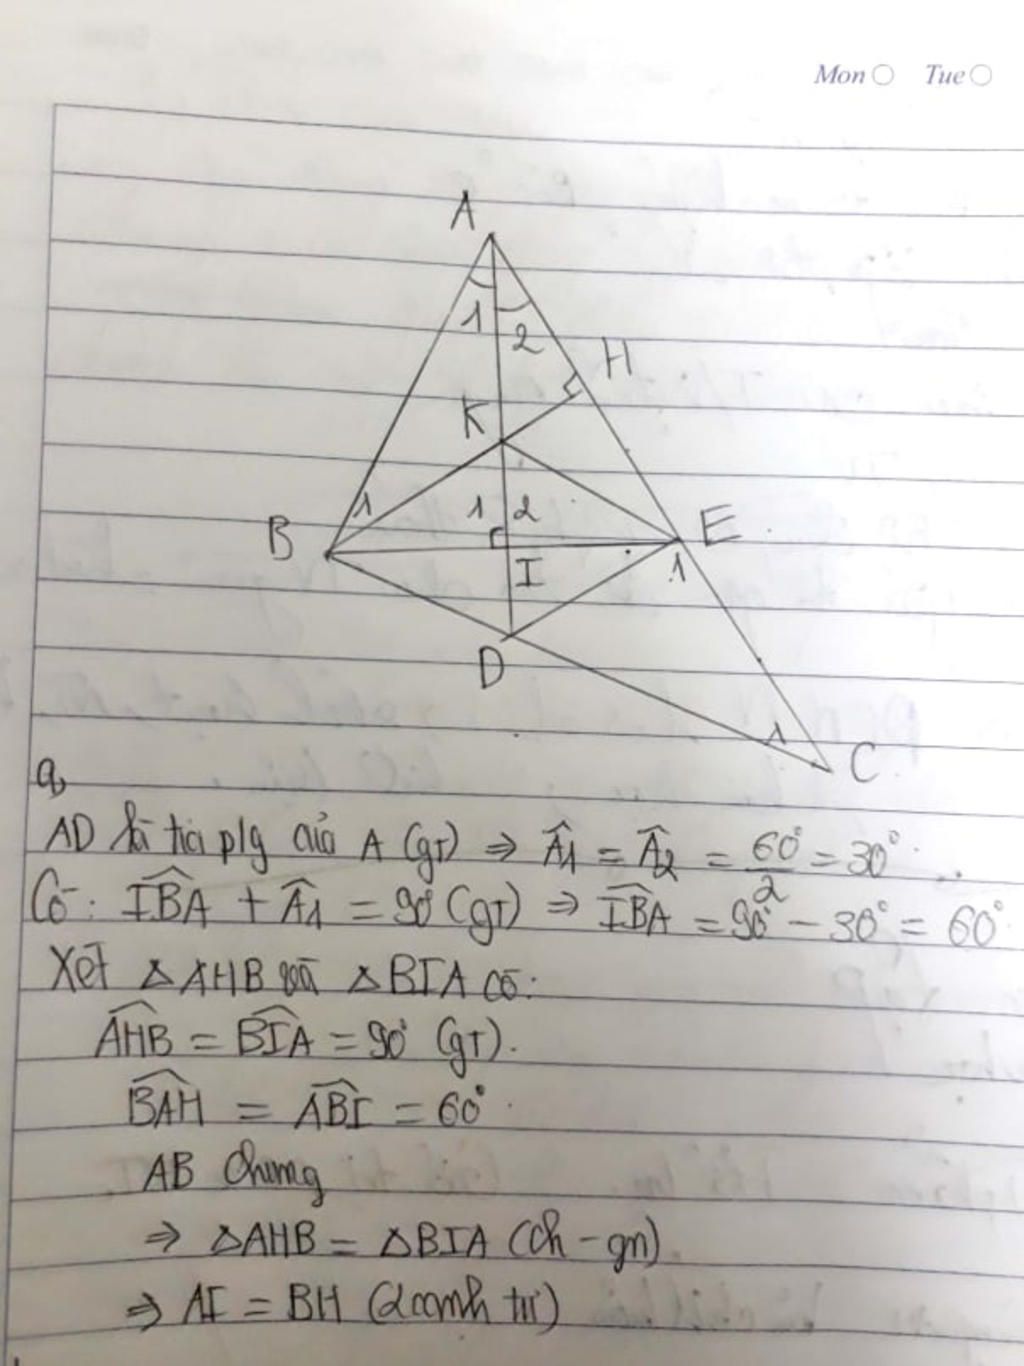 Mon Tue
A
1 2
H
K
1
1 2
B
E
I
1
D
1
C
a,
AD là tia p/g của A (gt) ⇒ Â1 = Â2 = 60°/2 = 30°
Có: IBA + Â1 = 90° (gt) ⇒ IBA = 90° - 30° = 60°
Xét ΔAHB và ΔBIA có:
AHB = BIA = 90° (gt).
BAH = ABI = 60°
AB chung
⇒ ΔAHB = ΔBIA (ch - gn)
⇒ AI = BH (2 cạnh tư)